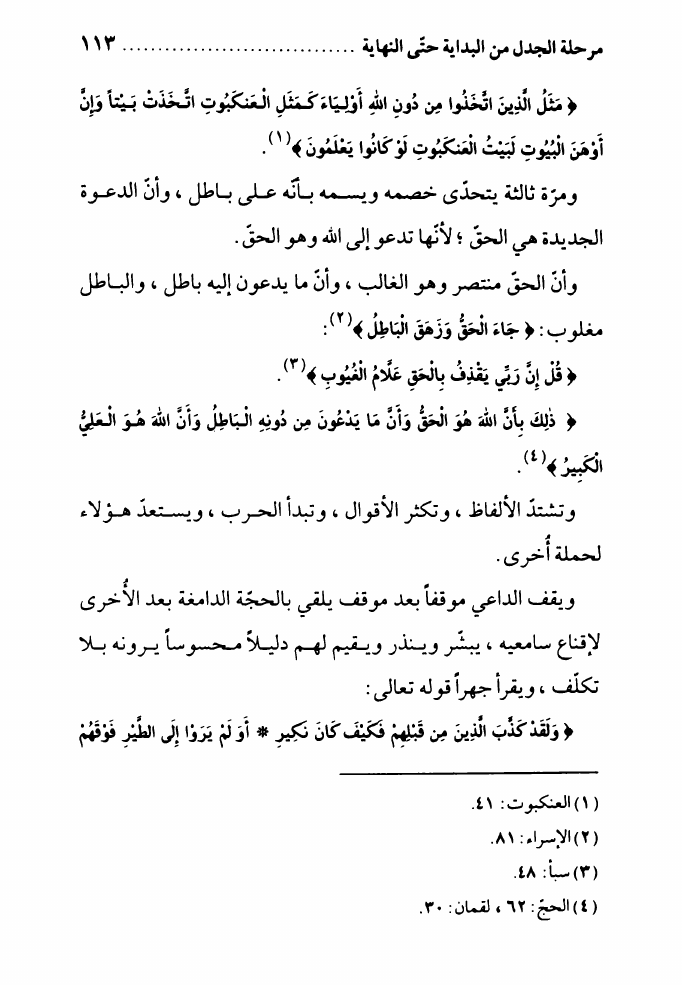 مرحلة الجدل من البداية حتّى النهاية ................................. ١١٣
﴿ مَثَلُ الَّذِينَ اتَّخَذُوا مِن دُونِ اللهِ أَوْلِيَاءَ كَـمَثَلِ الْـعَنكَبُوتِ اتَّـخَذَتْ بَـيْتاً وَإِنَّ
أَوْهَنَ الْبُيُوتِ لَبَيْتُ الْعَنكَبُوتِ لَوْ كَانُوا يَعْلَمُونَ ﴾(١).
ومرّة ثالثة يتحدّى خصمه ويسـمه بـأنّه عـلى بـاطل ، وأنّ الدعـوة
الجديدة هي الحقّ ؛ لأنّها تدعو إلى الله وهو الحقّ.
وأنّ الحقّ منتصر وهو الغالب ، وأنّ ما يدعون إليه باطل ، والبـاطل
مغلوب : ﴿ جَاءَ الْحَقُّ وَزَهَقَ الْبَاطِلُ ﴾(٢):
﴿ قُلْ إِنَّ رَبِّي يَقْذِفُ بِالْحَقِ عَلَّامُ الْغُيُوبِ ﴾(٣).
﴿ ذٰلِكَ بِأَنَّ اللهَ هُوَ الْحَقُّ وَأَنَّ مَا يَدْعُونَ مِن دُونِهِ الْـبَاطِلُ وَأَنَّ اللهَ هُـوَ الْـعَلِيُّ
الْكَبِيرُ ﴾(٤).
وتشتدّ الألفاظ ، وتكثر الأقوال ، وتبدأ الحـرب ، ويسـتعدّ هـؤلاء
لحملة أُخرى.
ويقف الداعي موقفاً بعد موقف يلقي بالحجّة الدامغة بعد الأُخرى
لإقناع سامعيه ، يبشّر ويـنذر ويـقيم لهـم دليـلاً مـحسوساً يـرونه بـلا
تكلّف ، ويقرأ جهراً قوله تعالى :
﴿ وَلَقَدْ كَذَّبَ الَّذِينَ مِن قَبْلِهِمْ فَكَيْفَ كَانَ نَكِيرِ * أَوَ لَمْ يَرَوْا إِلَى الطَّيْرِ فَوْقَهُمْ
(١) العنكبوت : ٤١.
(٢) الإسراء : ٨١.
(٣) سبأ : ٤٨.
(٤) الحجّ : ٦٢ ، لقمان : ٣٠.